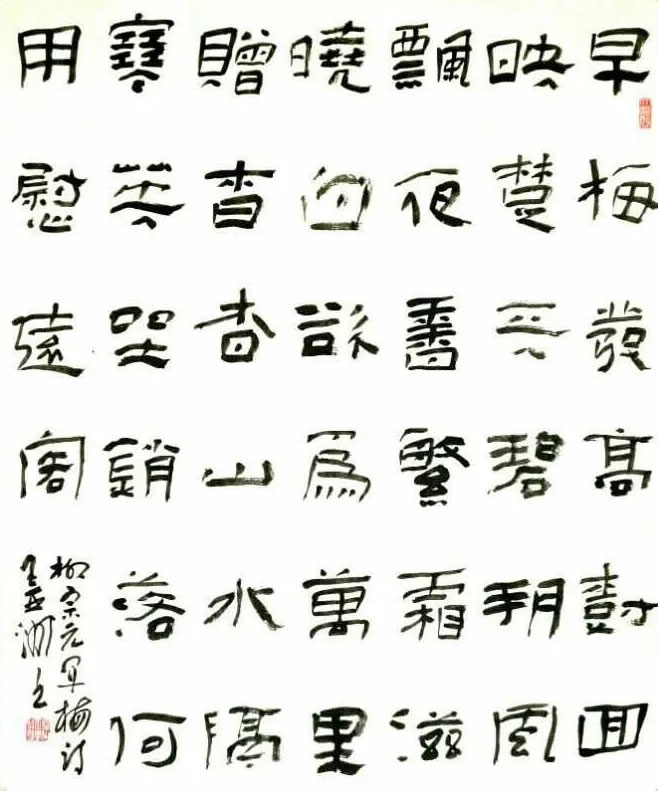 早梅發高尌回
映楚天碧朔風
飄夜香繁霜滋
曉白欲爲萬里
贈杳杳山水隔
寒英坐銷落何
用慰遠客
柳宗元早梅詩